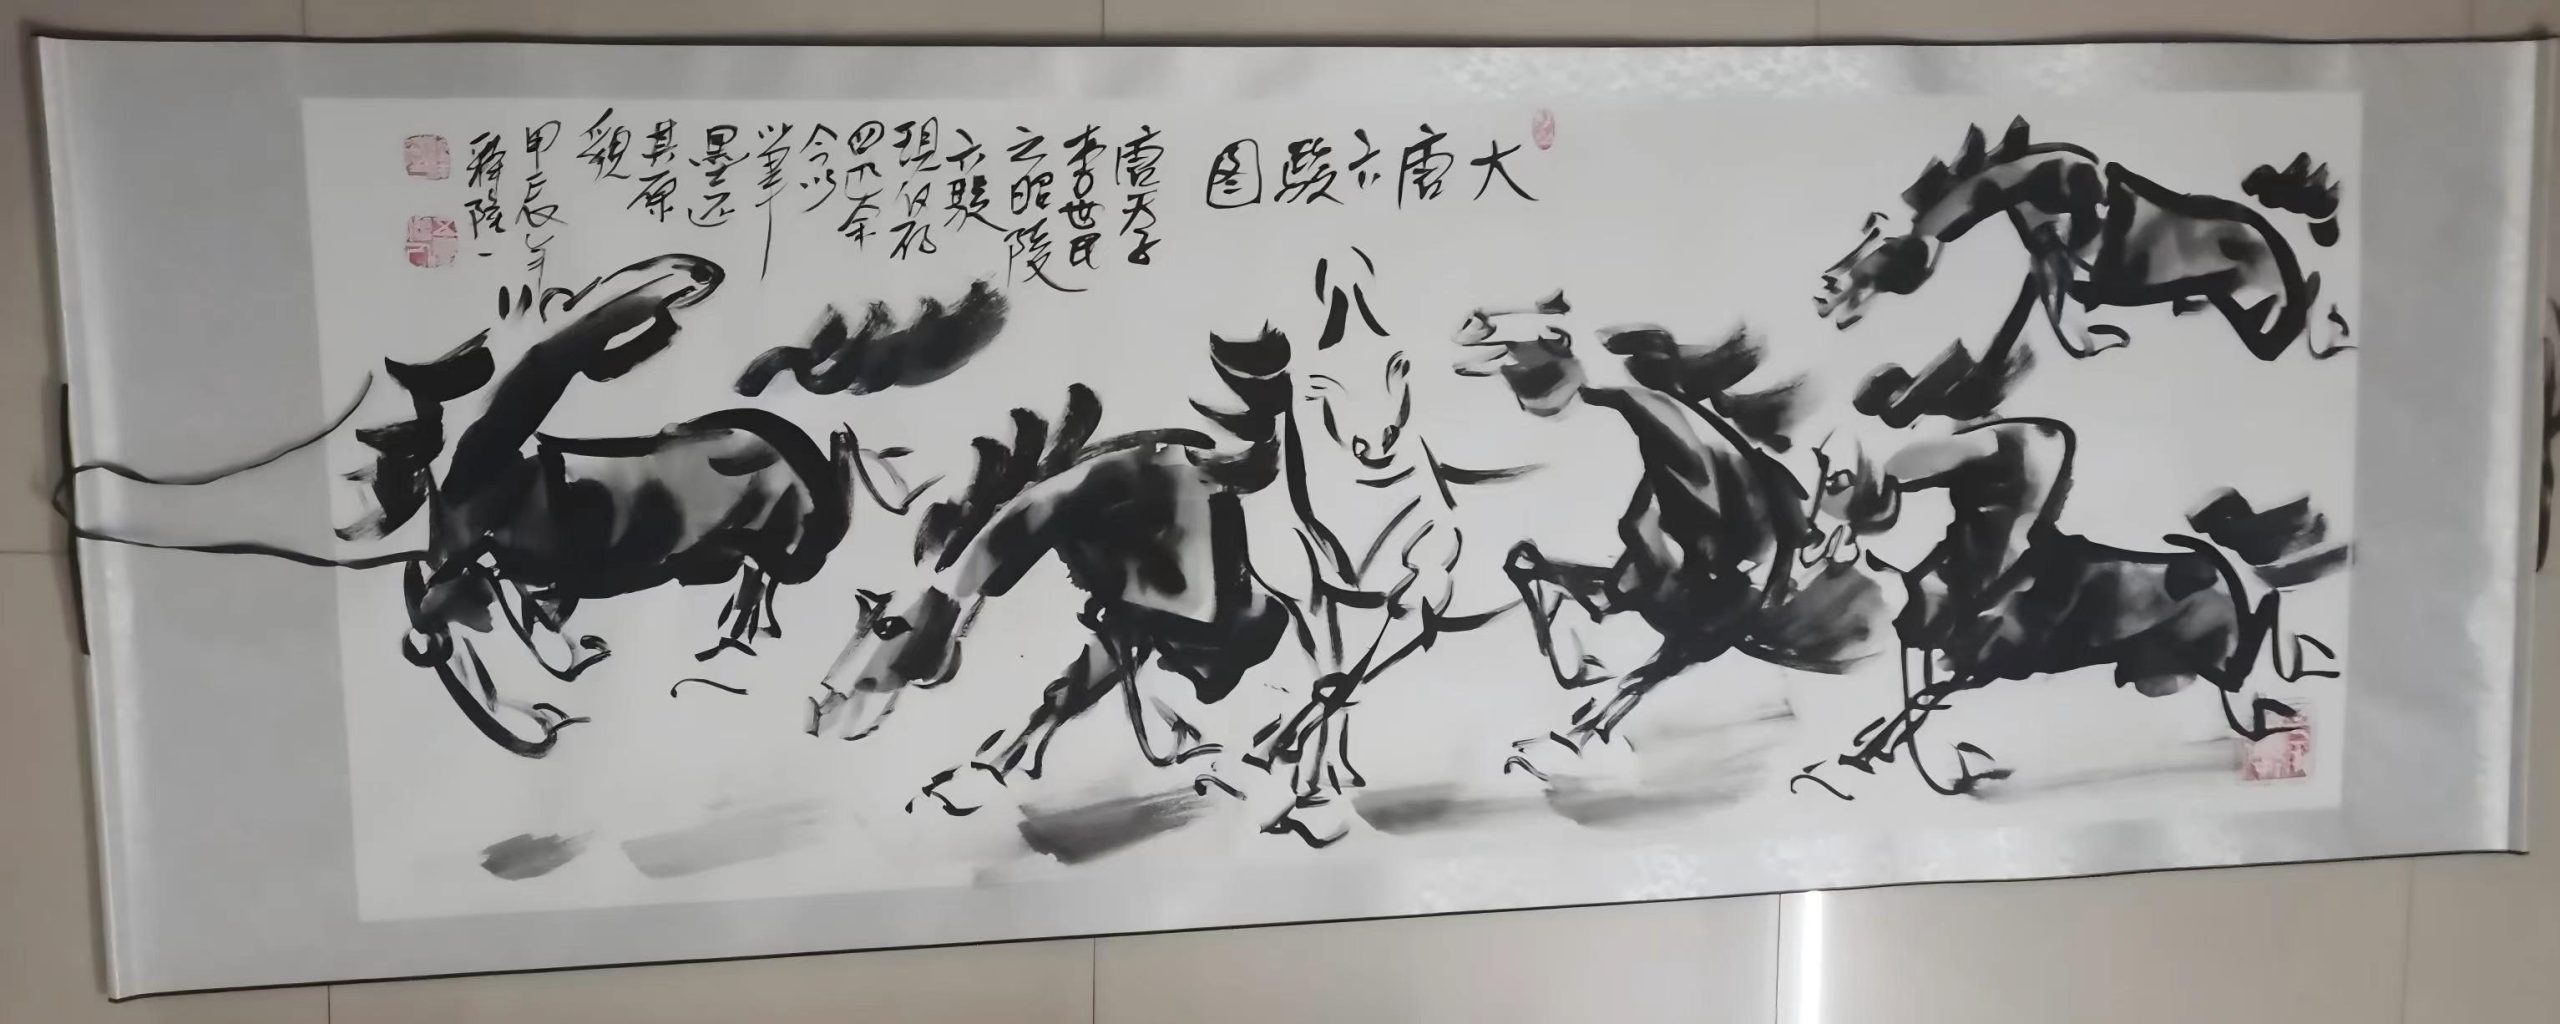 大唐六骏图
唐天子
李世民
之昭陵
六骏
现仅存
四匹余
今以
笔
墨还
其原
貌
甲辰年
释隆一